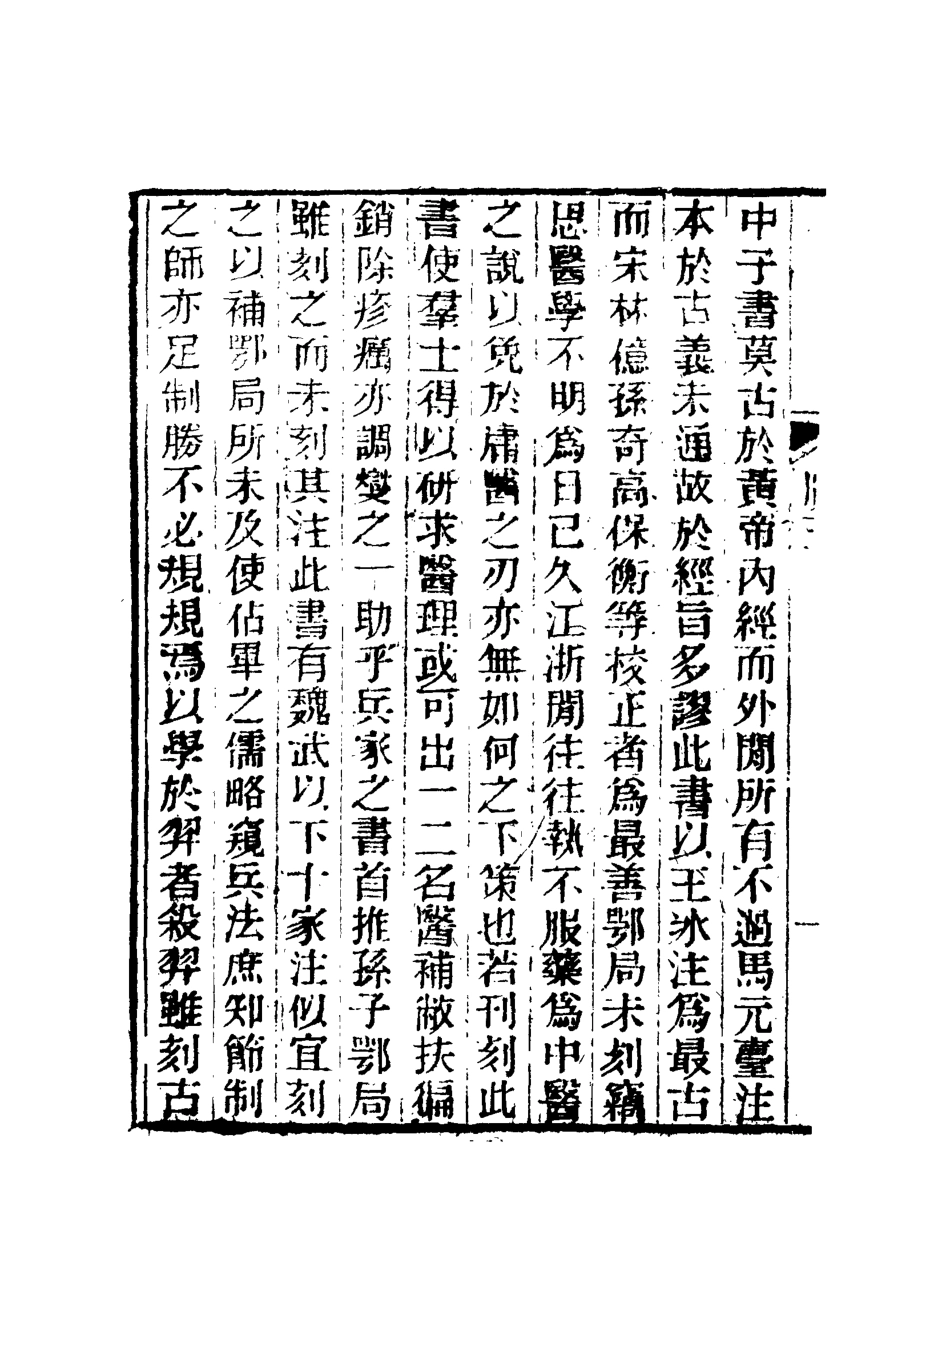 中子書莫古於黃帝內經而外閒所有不過馬元臺注
本於古義未通故於經旨多謬此書以王冰注爲最古
而宋林億孫奇高保衡等校正者爲最善鄂局未刻竊
思醫學不明爲日已久江浙閒往往執不服藥爲中醫
之說以免於庸醫之刃亦無如何之下策也若刊刻此
書使羣士得以研求醫理或可出一二名醫補敝扶偏
銷除疹癘亦調燮之一助乎兵家之書首推孫子鄂局
雖刻之而未刻其注此書有魏武以下十家注似宜刻
之以補鄂局所未及使佔畢之儒略窺兵法庶知節制
之師亦足制勝不必規規焉以學於羿者殺羿雖刻古